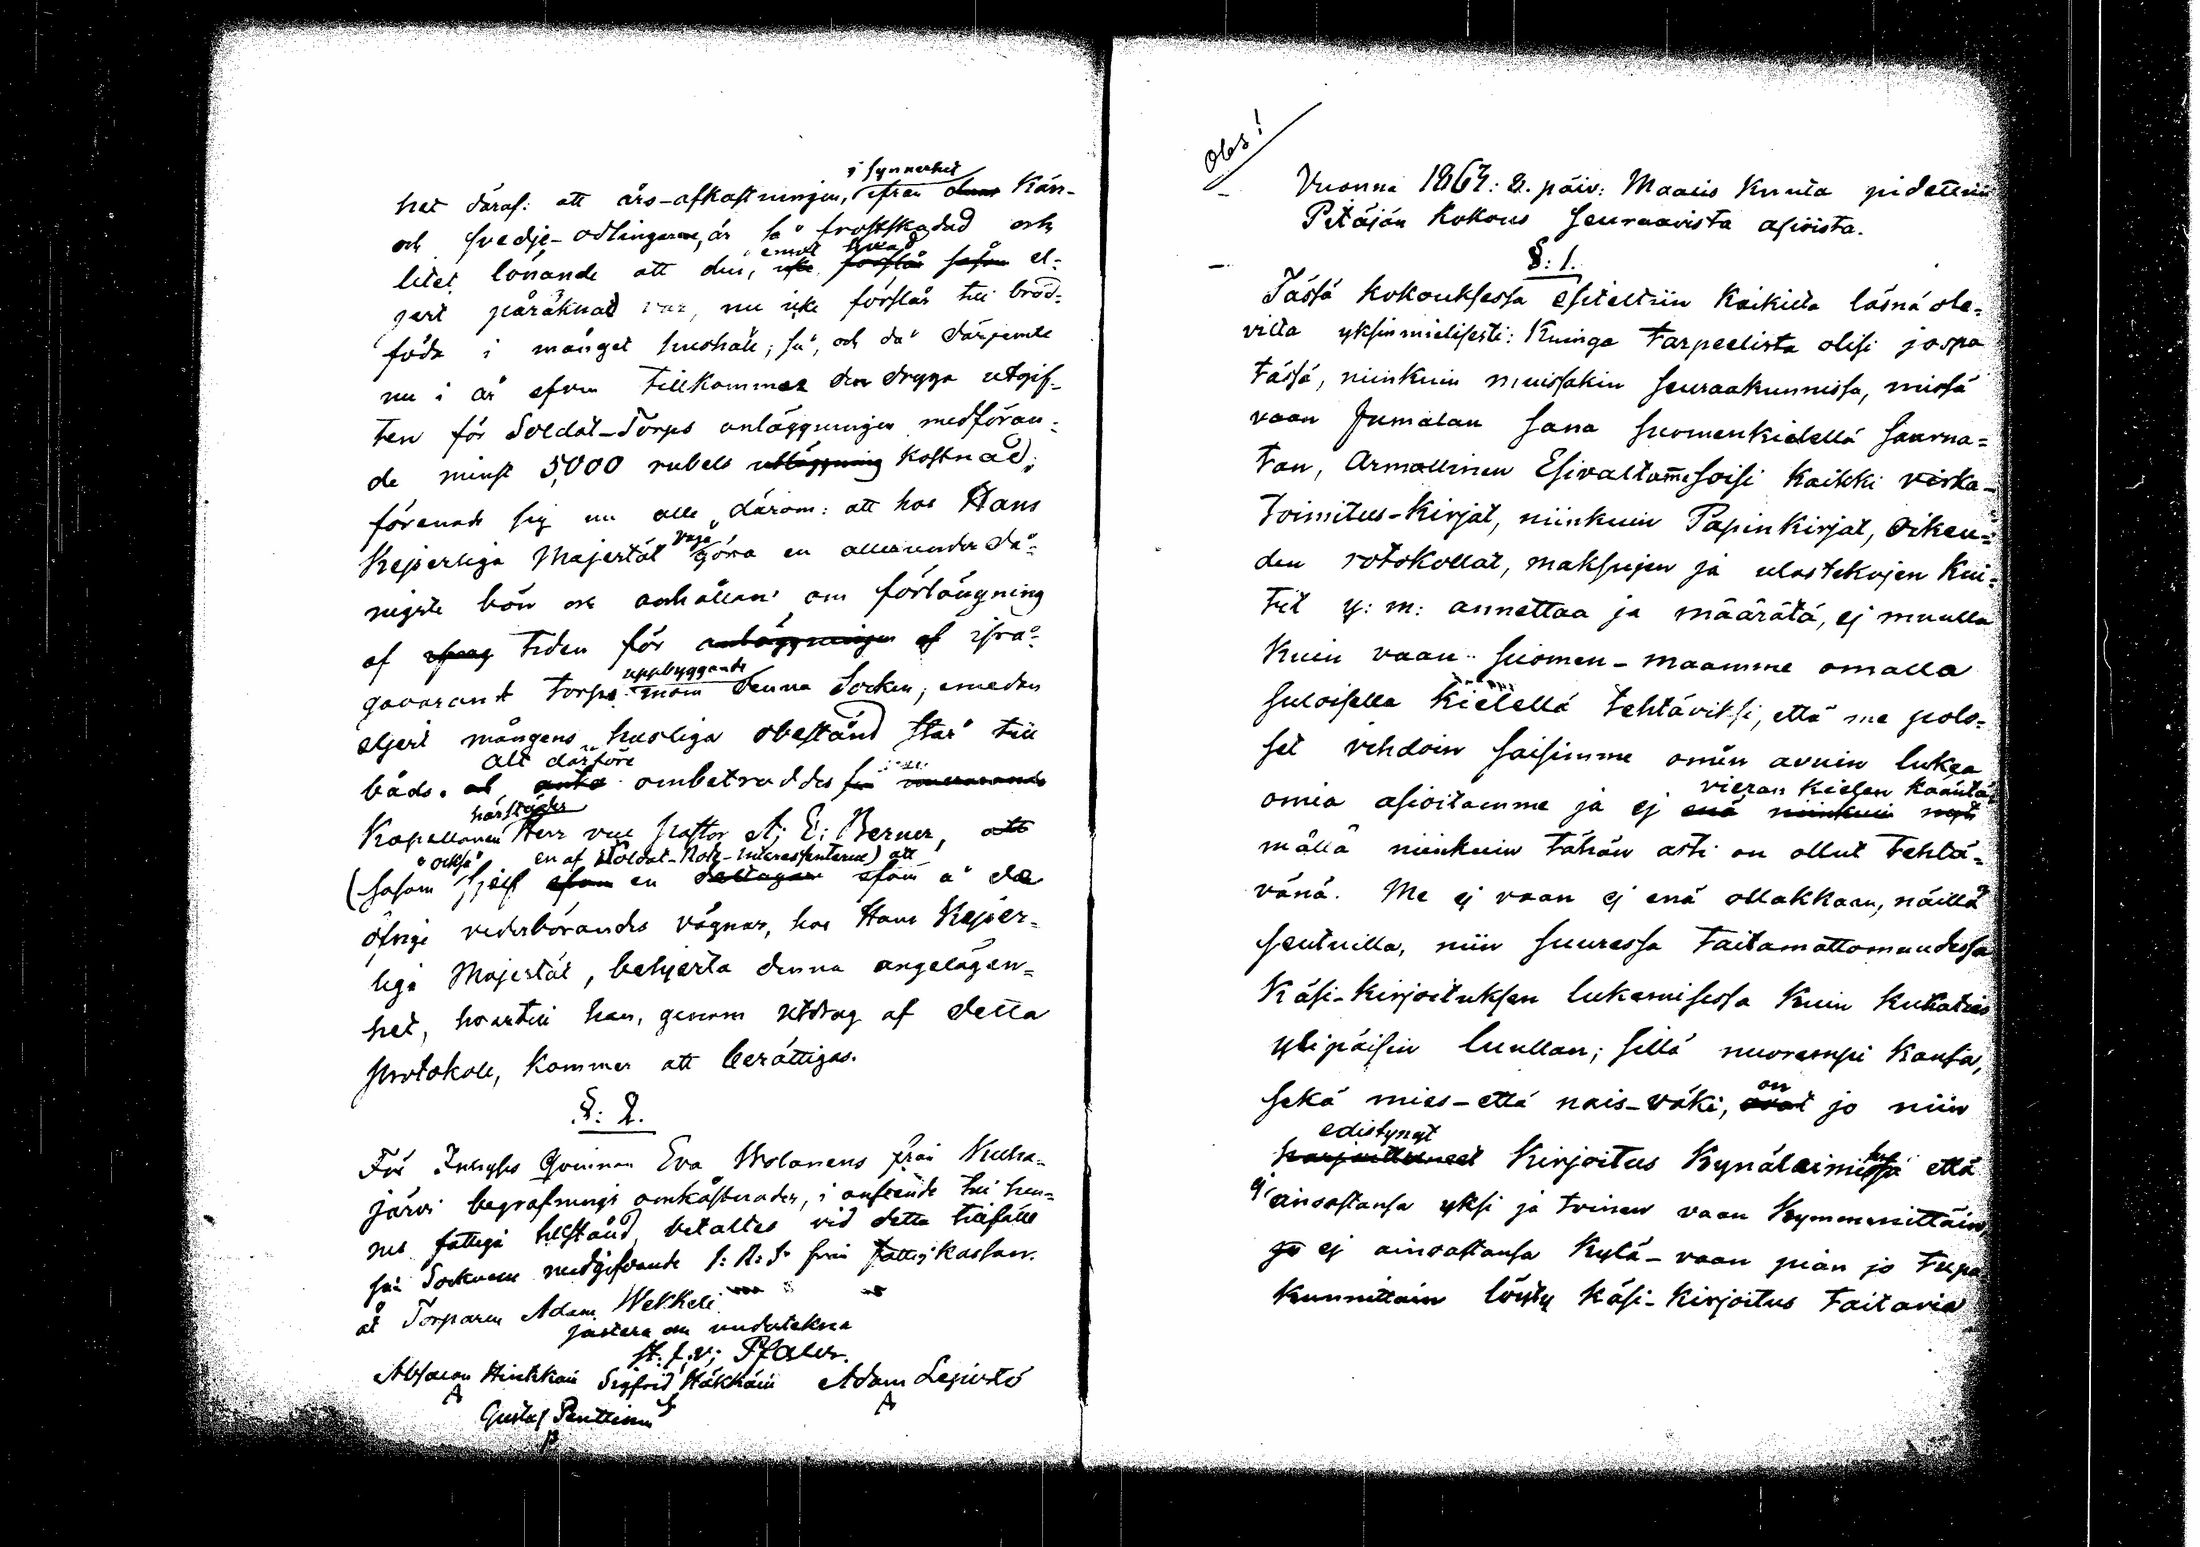 i synnerhet
het däraf: att års-afkastningen, ifrån dens Kärr-
och svedje-odlingarne, är så frostskadad och
litet lönande att den, emot hvad icke förslår såsom el-
jest påräknad var, nu icke förslår till bröd-
föda i månget hushåll; så, och då därjemte
nu i år efven tillkommer den dryga utgif-
ten för Soldat-Torps anläggningen medföran-
de minst 5,000 rubels utläggning kostnad;
förenade sig nu alle därom: att hos Hans
Kejserliga Majestät våga göra en allerunderdå-
nigste bön och anhållan om förlängning
af tiden för anläggningen af ifrå-
gavarande torps uppbyggande inom denna Socken, emedan
eljest mångens husliga obestånd står till
båds. Alt därföre ombetroddes
Kapellanen härstädes Herr vice pastor A: E: Berner, att
(såsom "också" sjelf en af Soldat-Rote-Interessenterne) att efom en deltagare å de
öfrige vederbörandes vägnar, hos Hans Kejser-
liga Majestät, behjerta denna angelägen-
het, hvartill han, genom utdrag af detta
protokoll, kommer att berättigas.
§: 2.
För Inhyses Qvinnan Eva Wolanens från Kuha-
järvi begrafnings omkåstnader, i anseende till hen-
nes fattiga tillstånd, betaltes vid detta tillfälle
på Socknens medgifvande 1: R: S: från fattigkassan
åt Torparen Adam Wekkeli
justera och undertekna
A: E: v; Pfaler.
Absalon Hinkkain Sigfrid Häkkäin Adam Lepistö
Gustaf Penttinen
Obs!
Vuonna 1863: 8. päiv: Maalis Kuuta pidettiin
Pitäjän Kokous seuraavista asioista.
§: 1.
Tässä kokouksessa esiteltiin kaikilta läsnä ole-
vilta yksinmielisesti: Kuinga tarpeelista olisi jospa
tässä, niinkuin muissakin seuraakunnissa, missä
vaan Jumalan sana suomenkielellä saarna-
tan, Armollinen Esivaltamme soisi kaikki virka-
toimitus-kirjat, niinkuin Papinkirjat, oikeu-
den rotokollat, maksujen ja ulostekojen kui-
tit y: m: annettaa ja määrätä, ej muulla
kuin vaan suomen-maamme omalla
suloisella kielellä tehtäviksi, että me polo-
set vihdoin saisimme omin avuin lukea
omia asioitamme ja ej enä niinkuin nyt vieran kielen käntä-
mällä niinkuin tähän asti on ollut tehtä-
vänä. Me ej vaan ej enä ollakkaan, näillä
seutuilla, niin suuressa taitamattomuudessa
Käsi-kirjoituksen lukemisessa kuin kukaties
ylipäisin luullan; sillä nuorempi kansa,
sekä mies-että nais-väki, ovat on jo niin
harjoittuneet edistynyt kirjoitus kynäleimissä että
ej ainoastansa yksi ja toinen vaan kymmenittäin,
ja ej ainoastansa kylä-vaan pian jo tupa
kunnittain löyty käsi-kirjoitus taitavia